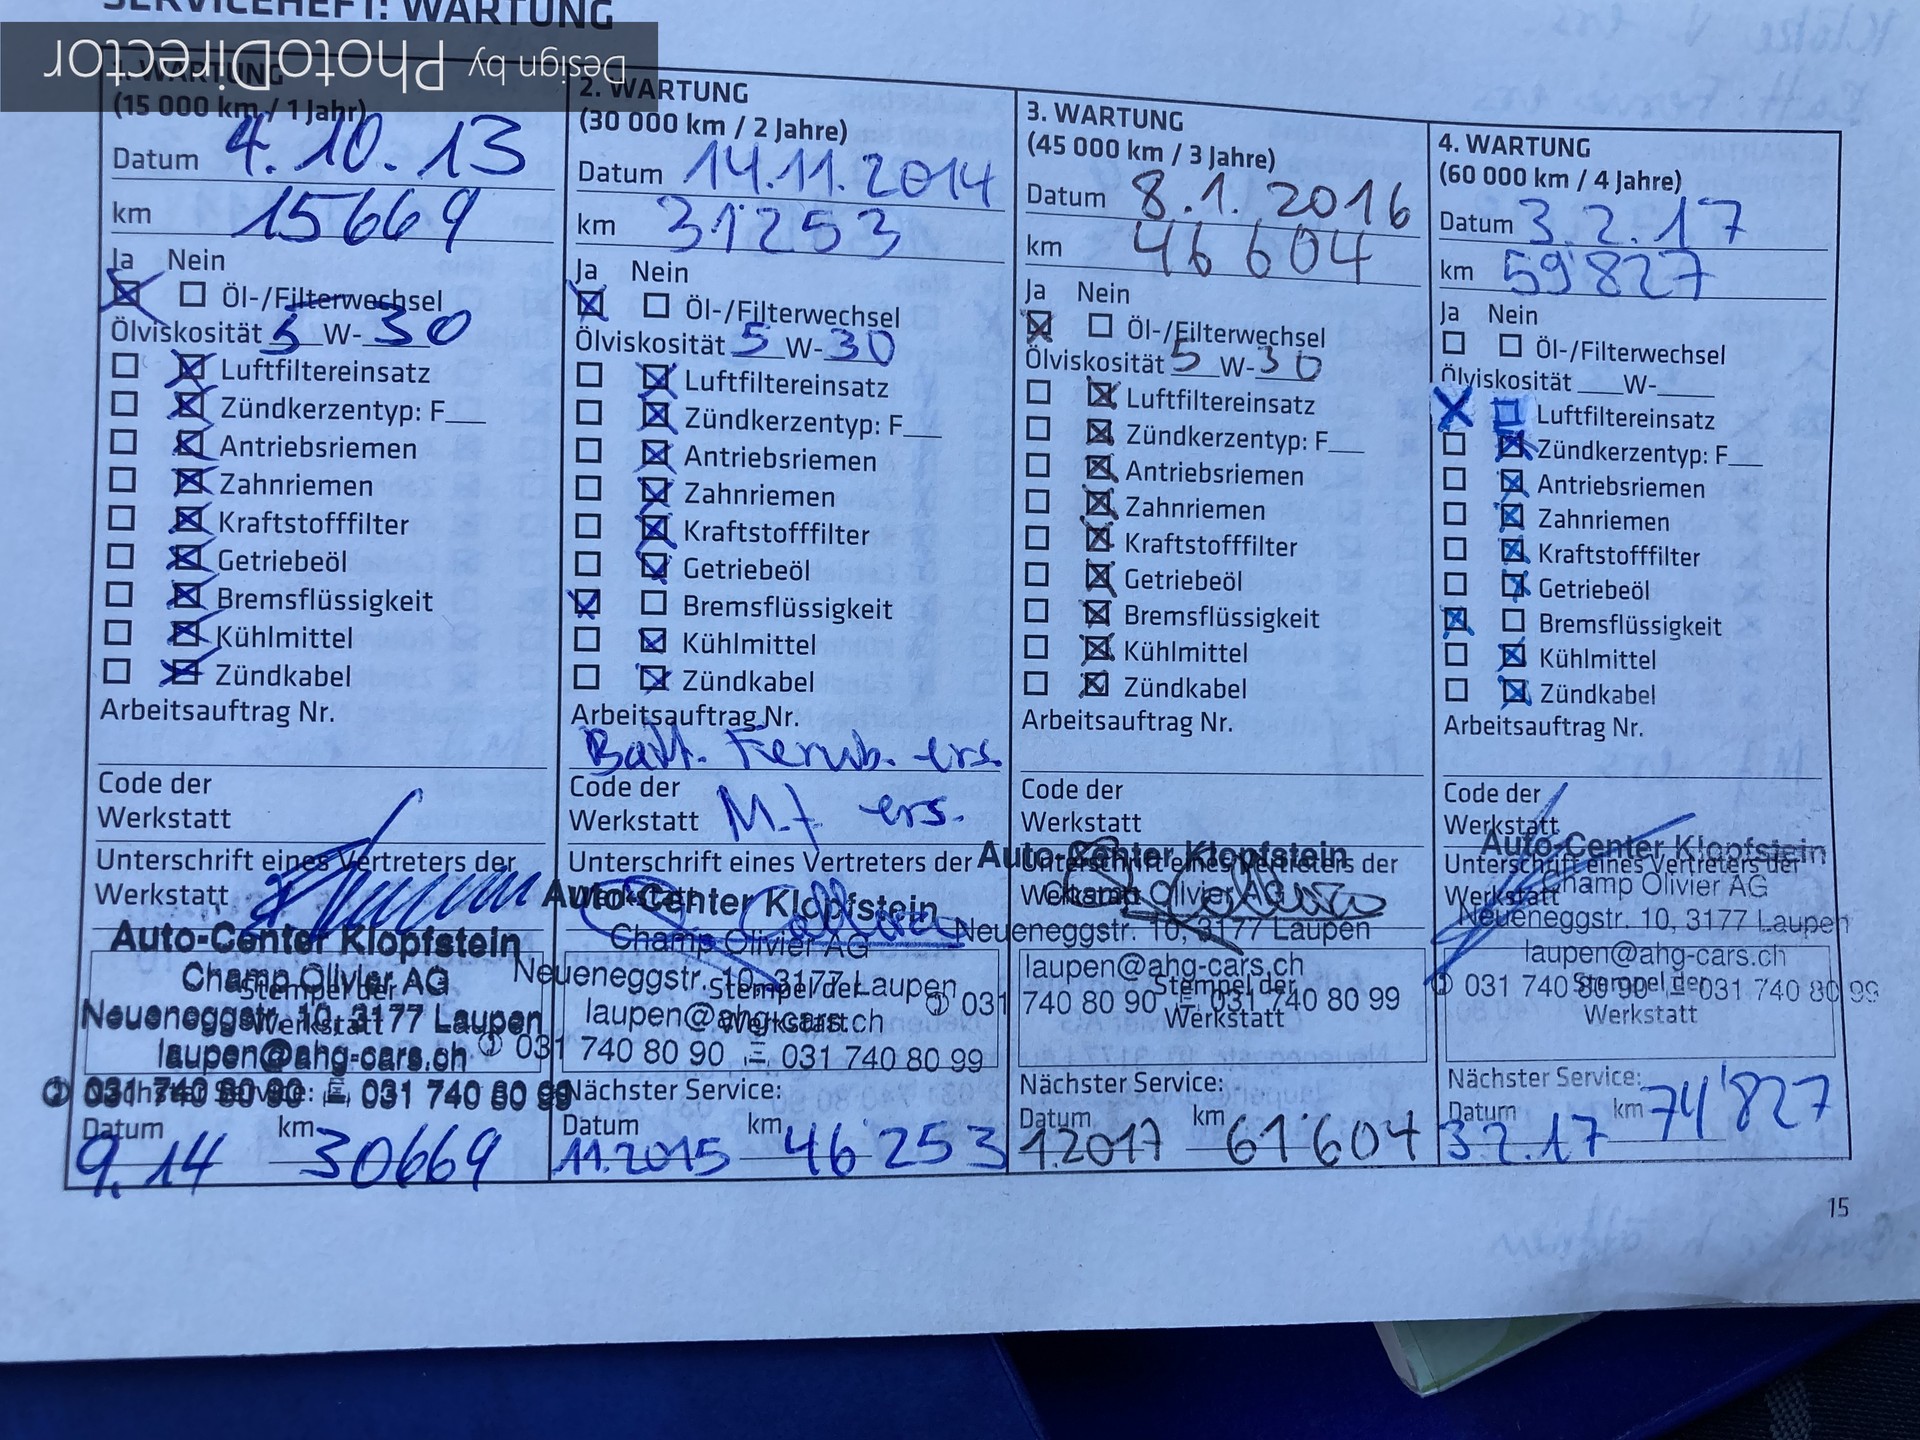 SERVICEHEFT: WARTUNG
Design by PhotoDirector
1. WARTUNG
(15 000 km / 1 Jahr)
Datum 4.10.13
km 15669
Ja Nein
Öl-/Filterwechsel
Ölviskosität 5 W- 30
Luftfiltereinsatz
Zündkerzentyp: F__
Antriebsriemen
Zahnriemen
Kraftstofffilter
Getriebeöl
Bremsflüssigkeit
Kühlmittel
Zündkabel
Arbeitsauftrag Nr.
Code der
Werkstatt
Unterschrift eines Vertreters der
Werkstatt
Auto-Center Klopfstein
Champ Olivier AG
Stempel der
Neueneggstr. 10, 3177 Laupen
Werkstatt
laupen@ahg-cars.ch
031 740 80 90 031 740 80 99
Nächster Service:
Datum km
9.14 30669
2. WARTUNG
(30 000 km / 2 Jahre)
Datum 14.11.2014
km 31'253
Ja Nein
Öl-/Filterwechsel
Ölviskosität 5 W- 30
Luftfiltereinsatz
Zündkerzentyp: F__
Antriebsriemen
Zahnriemen
Kraftstofffilter
Getriebeöl
Bremsflüssigkeit
Kühlmittel
Zündkabel
Arbeitsauftrag Nr.
Batt. Fernb. ers.
Code der
Werkstatt ers.
Unterschrift eines Vertreters der
Werkstatt
Auto-Center Klopfstein
Champ Olivier AG
Neueneggstr. 10, 3177 Laupen
Stempel der
laupen@ahg-cars.ch
Werkstatt
031 740 80 90 031 740 80 99
Nächster Service:
Datum km
11.2015 46'253
3. WARTUNG
(45 000 km / 3 Jahre)
Datum 8.1.2016
km 46 604
Ja Nein
Öl-/Filterwechsel
Ölviskosität 5 W- 30
Luftfiltereinsatz
Zündkerzentyp: F__
Antriebsriemen
Zahnriemen
Kraftstofffilter
Getriebeöl
Bremsflüssigkeit
Kühlmittel
Zündkabel
Arbeitsauftrag Nr.
Code der
Werkstatt
Auto-Center Klopfstein
Unterschrift eines Vertreters der
Werkstatt
Champ Olivier AG
Neueneggstr. 10, 3177 Laupen
laupen@ahg-cars.ch
Stempel der
031 740 80 90 031 740 80 99
Werkstatt
Nächster Service:
Datum km
1.2017 61'604
4. WARTUNG
(60 000 km / 4 Jahre)
Datum 3.2.17
km 59'827
Ja Nein
Öl-/Filterwechsel
Ölviskosität ___W-____
Luftfiltereinsatz
Zündkerzentyp: F__
Antriebsriemen
Zahnriemen
Kraftstofffilter
Getriebeöl
Bremsflüssigkeit
Kühlmittel
Zündkabel
Arbeitsauftrag Nr.
Code der
Werkstatt
Auto-Center Klopfstein
Unterschrift eines Vertreters der
Champ Olivier AG
Werkstatt
Neueneggstr. 10, 3177 Laupen
laupen@ahg-cars.ch
Stempel der
031 740 80 90 031 740 80 99
Werkstatt
Nächster Service:
Datum km 74'827
3.2.17
15